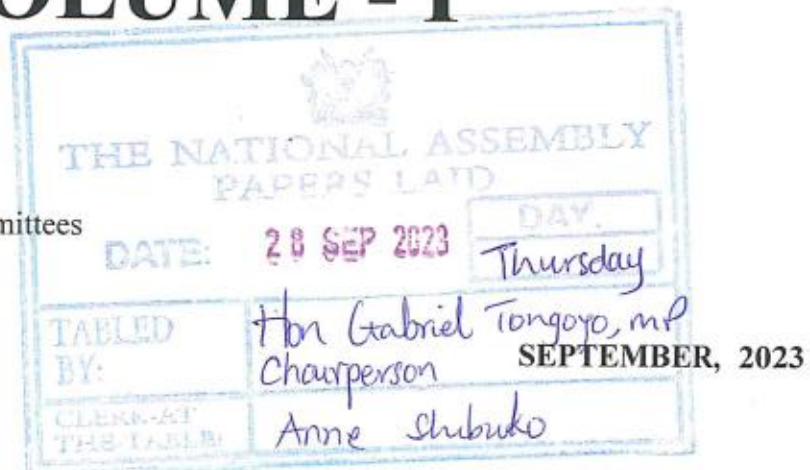 OLUME - I
THE NATIONAL ASSEMBLY
PAPERS LAID
mittees
DATE: 28 SEP 2023
DAY.
Thursday
TABLED
BY:
Hon Gabriel Tongoyo, MP
Chairperson
SEPTEMBER, 2023
CLERK-AT
THE-TABLE:
Anne Shibuko